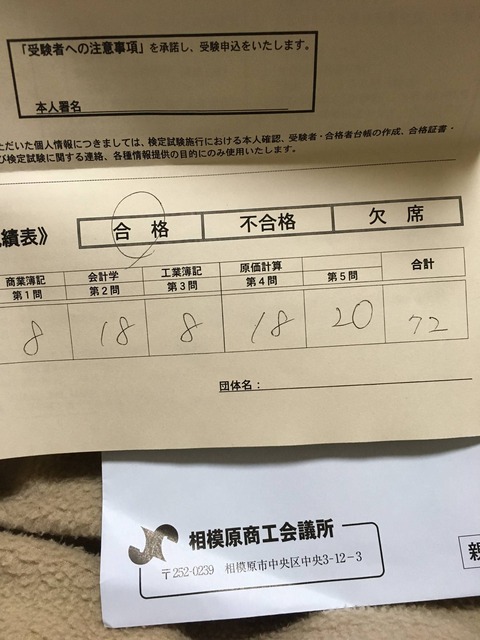 「受験者への注意事項」を承諾し、受験申込をいたします。
本人署名
ただいた個人情報につきましては、検定試験施行における本人確認、受験者・合格者台帳の作成、合格証書・
び検定試験に関する連絡、各種情報提供の目的にのみ使用いたします。
績表》
合 格 不合格 欠 席
商業簿記 会計学 工業簿記 原価計算 合計
第1問 第2問 第3問 第4問 第5問
8 18 8 18 20 72
団体名:
相模原商工会議所
〒252-0239 相模原市中央区中央3-12-3
親